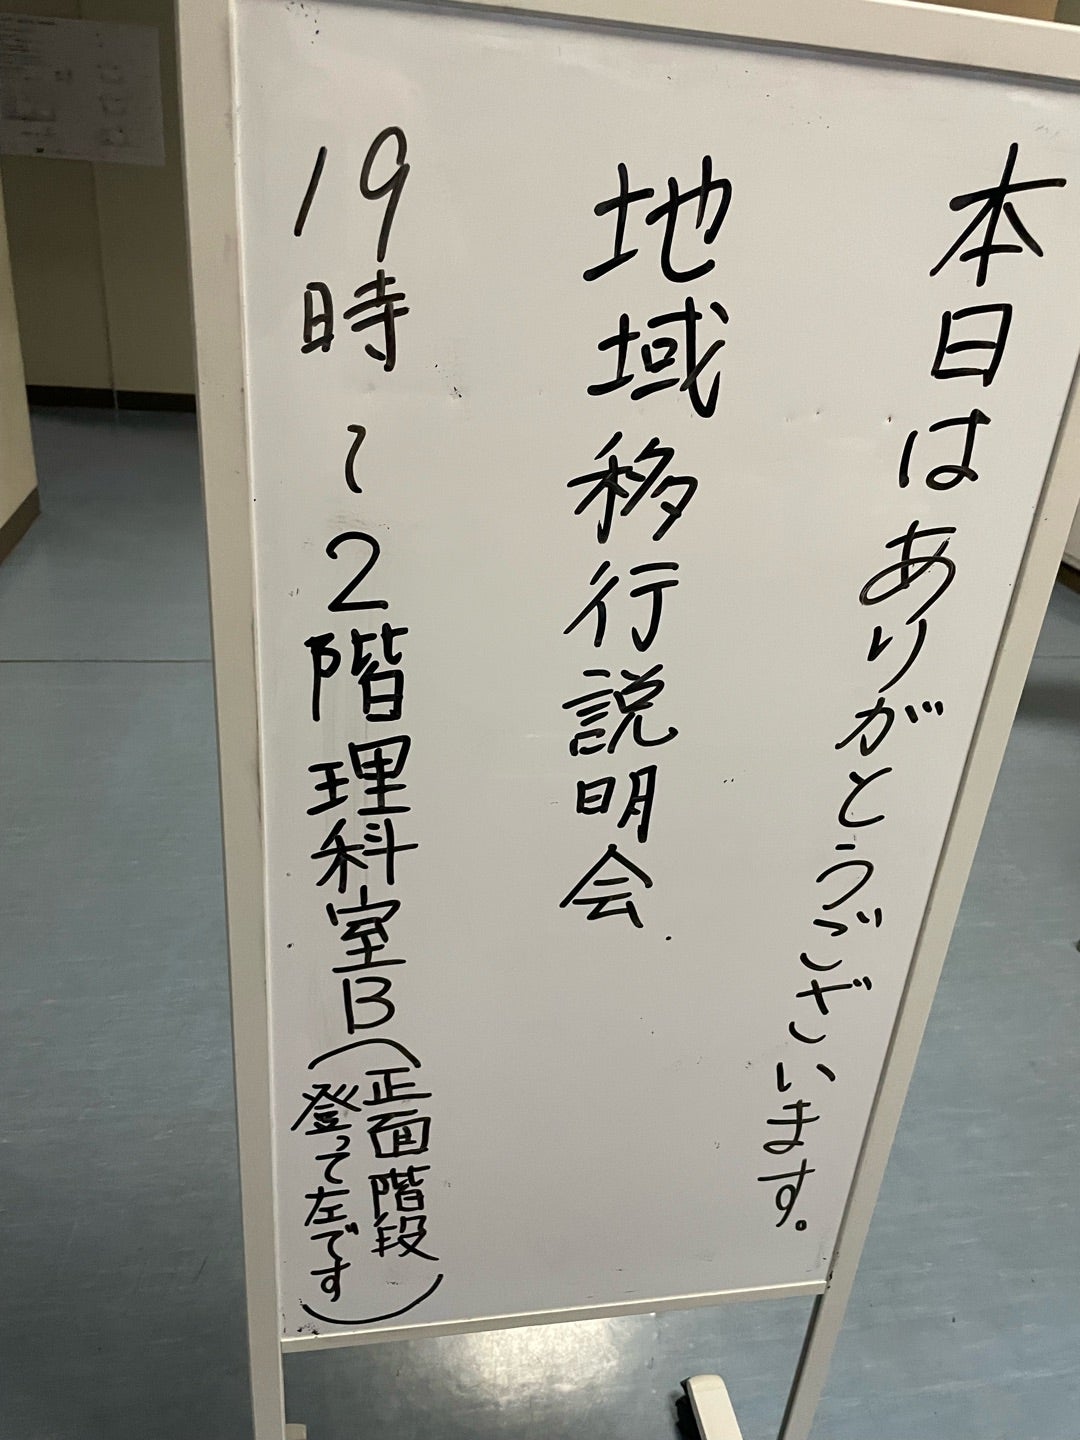 本日はありがとうございます。
地域移行説明会
19時~2階理科室B(正面階段
登って左です)